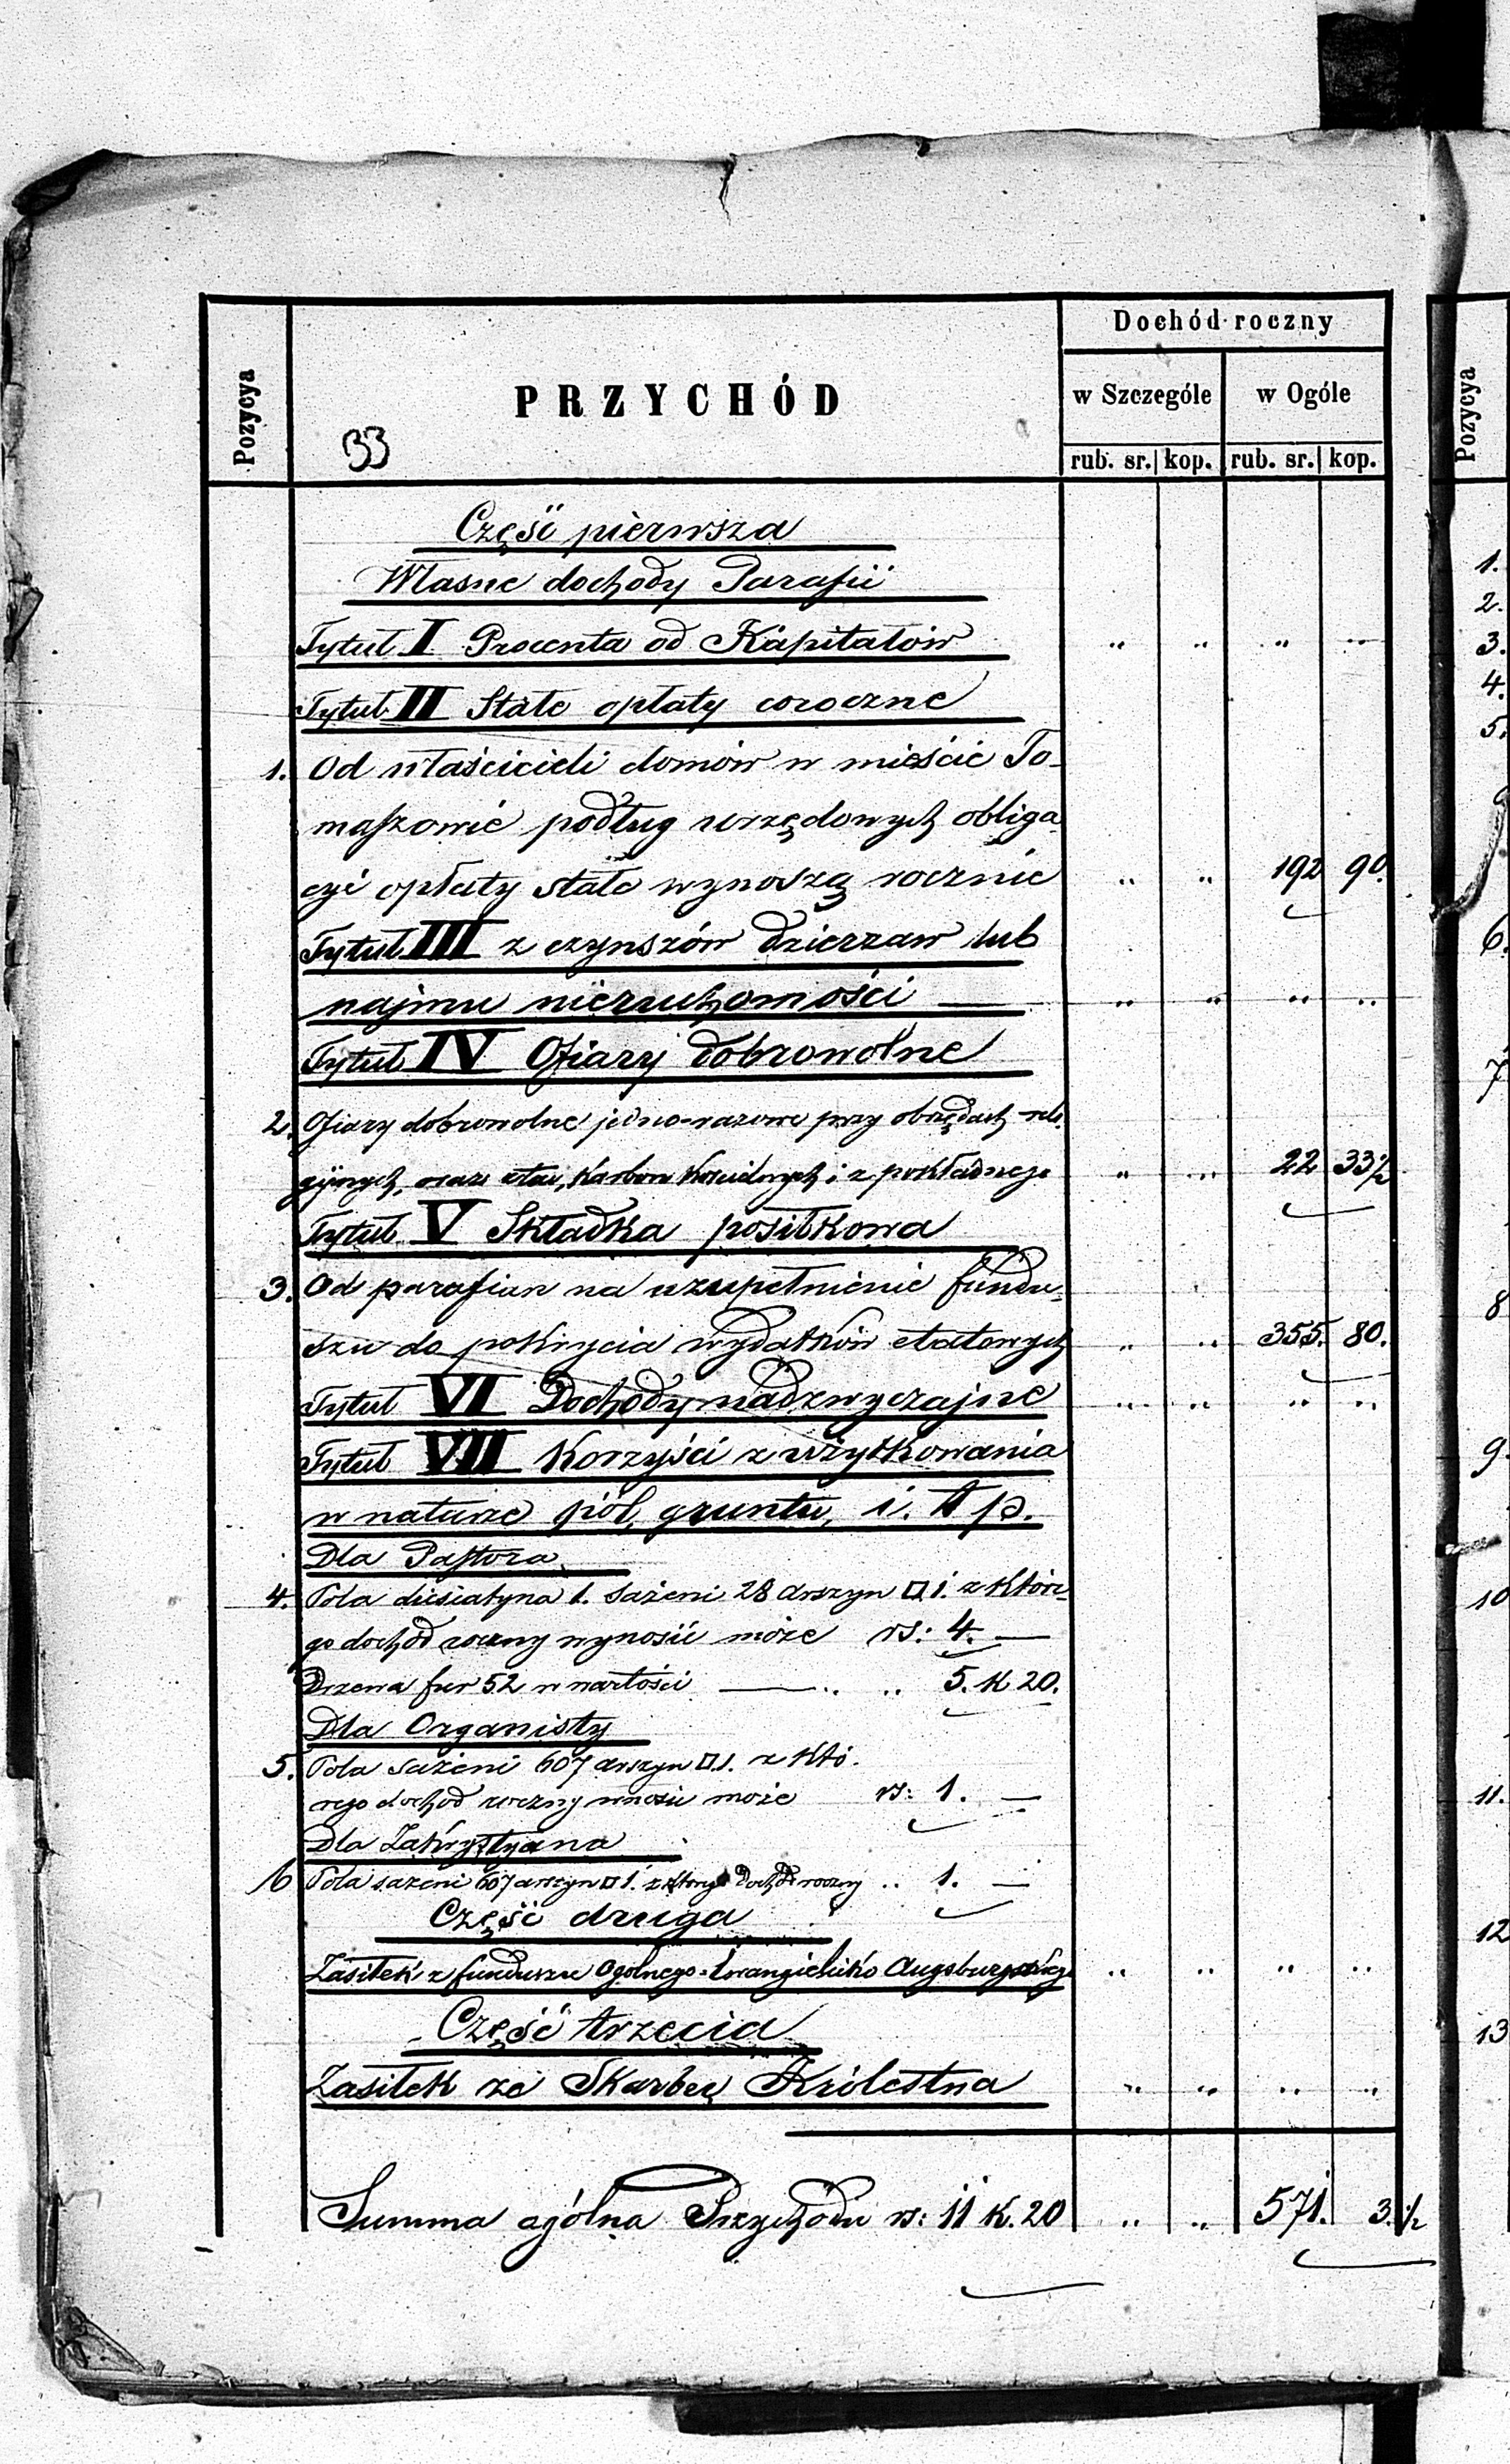 Dochód roczny
Pozycya
PRZYCHÓD
w Szczególe w Ogóle
rub. sr. kop. rub. sr. kop.
33
Pozycya
Część pierwsza
Własne dochody Parafii
Tytuł I Procenta od Kapitałów " " " "
Tytuł II Stałe opłaty coroczne
1. Od właścicieli domów w mieście To-
maszowie podług urzędowych obliga
cyi opłaty stałe wynoszą rocznie " " 192 90.
Tytuł III z czynszów dzierzaw lub
najmu nieruchomości — " " " "
Tytuł IV Ofiary dobrowolne
2. Ofiary dobrowolne jedno-razowe przy obrzędach reli-
gijnych, oraz karbon kościelnych i z pokładnego " " 22 33½
Tytuł V Składka posiłkowa
3. Od parafian na uzupełnienie fundu-
szu do pokrycia wydatków etatowych " " 355. 80.
Tytuł VI Dochody nadzwyczajne " " " "
Tytuł VII Korzyści z użytkowania
w naturze pól, gruntu, i. t p.
Dla Pastora
4. Pola diesiatyna 1. sażeni 28 arszyn □ 1. z które-
go dochód roczny wynosić może rs: 4. —
Drzewa fur 52 w wartości — " " 5. K 20.
Dla Organisty
5. Pola sażeni 607 arszyn □ 1. z któ-
rego dochód roczny wnosić może rs: 1. —
Dla Zakrystyana
6 Pola sażeni 607 arszyn □ 1. z którego dochód roczny " 1. —
Część druga
Zasiłek z funduszu Ogólnego-Ewangielicko Augsburgskiego " " " "
Część trzecia
Zasiłek ze Skarbu Królestwa " " " "
Summa ogólna Przychodu rs: 11 K. 20 " " 571. 3.½
1.
2.
3.
4.
5.
6.
7
8
9.
10
11.
12
13